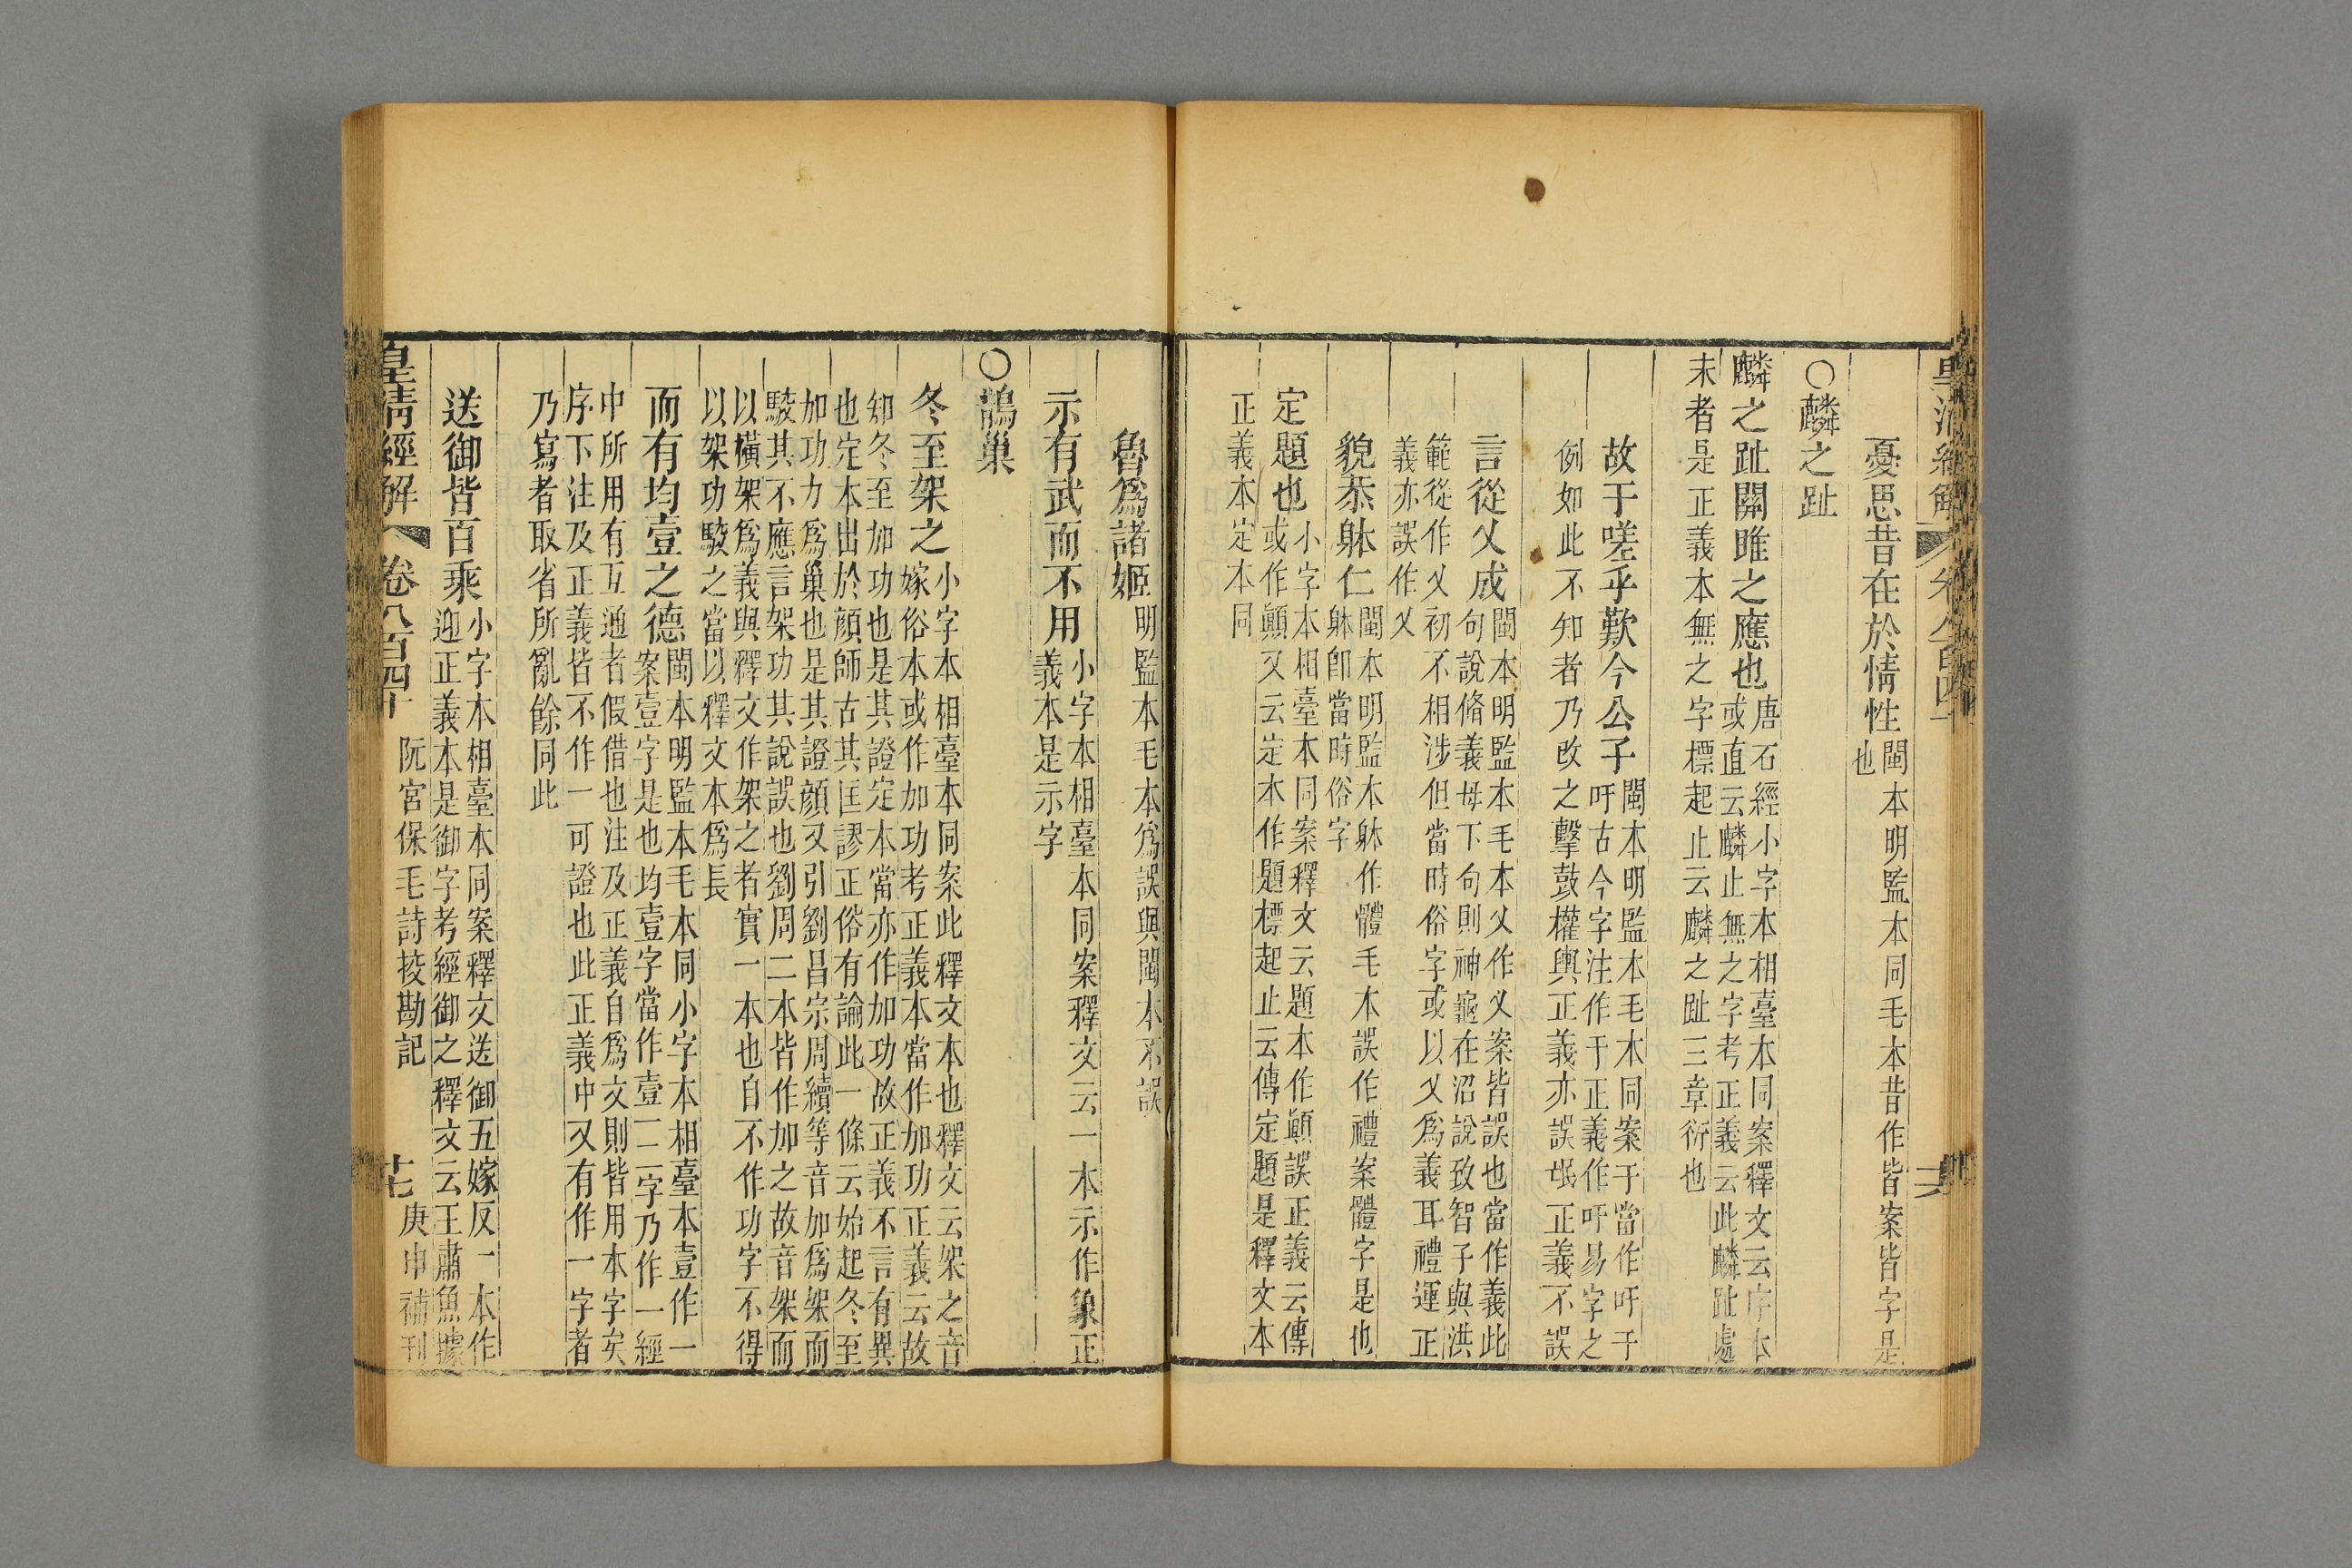 皇清經解
卷八百四十
憂思昔在於情性閩本明監本同毛本昔作皆案皆字是
也
○麟之趾
麟之趾關雎之應也唐石經小字本相臺本同案釋文云序本
或直云麟止無之字考正義云此麟趾處
末者是正義本無之字標起止云麟之趾三章衍也
故于嗟乎歎今公子閩本明監本毛本同案于當作吁于
吁古今字注作于正義作吁易字之
例如此不知者乃改之擊鼓權輿正義亦誤氓正義不誤
言從乂成閩本明監本毛本乂作义案皆誤也當作義此
句說脩義母下句則神龜在沼說致智子與洪
範從作乂初不相涉但當時俗字或以乂爲義耳禮運正
義亦誤作乂
貌恭躰仁閩本明監本躰作體毛本誤作禮案體字是也
躰卽當時俗字
定題也小字本相臺本同案釋文云題本作顚誤正義云傳
或作顚又云定本作題標起止云傳定題是釋文本
正義本定本同
魯爲諸姬明監本毛本爲誤與閩本不誤
示有武而不用小字本相臺本同案釋文云一本示作象正
義本是示字
○鵲巢
冬至架之小字本相臺本同案此釋文本也釋文云架之音
嫁俗本或作加功考正義本當作加功正義云故
知冬至加功也是其證定本當亦作加功故正義不言有異
也定本出於顔師古其匡謬正俗有論此一條云始起冬至
加功力爲巢也是其證顔又引劉昌宗周續等音加爲架而
駿其不應言架功其說誤也劉周二本皆作加之故音架而
以橫架爲義與釋文作架之者實一本也自不作功字不得
以架功駿之當以釋文本爲長
而有均壹之德閩本明監本毛本同小字本相臺本壹作一
案壹字是也均壹字當作壹一二字乃作一經
中所用有互通者假借也注及正義自爲文則皆用本字矣
序下注及正義皆不作一可證也此正義中又有作一字者
乃寫者取省所亂餘同此
送御皆百乘小字本相臺本同案釋文送御五嫁反一本作
迎正義本是御字考經御之釋文云王肅魚據
皇清經解
卷八百四十
阮宮保毛詩挍勘記
庚申補刊